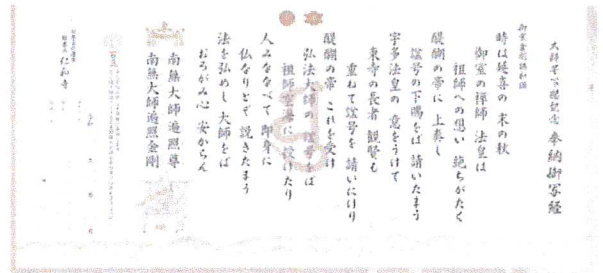 大師号下賜記念 奉納御写経
時は延喜の末の秋
御室の禅師 法皇は
祖師への思い 絶ちがたく
醍醐の帝に 上奏し
諡号の下賜をば 請いたまう
宇多法皇の 意をうけて
東寺の長者 観賢も
重ねて諡号を 請いにけり
醍醐の帝 これを受け
弘法大師の 諡号をば
祖師空海に 授けたり
人みななべて 即身に
仏なりとぞ 説きたまう
法を弘めし 大師をば
おろがみ心 安からん
南無大師遍照尊
南無大師遍照金剛
令和
仁和寺